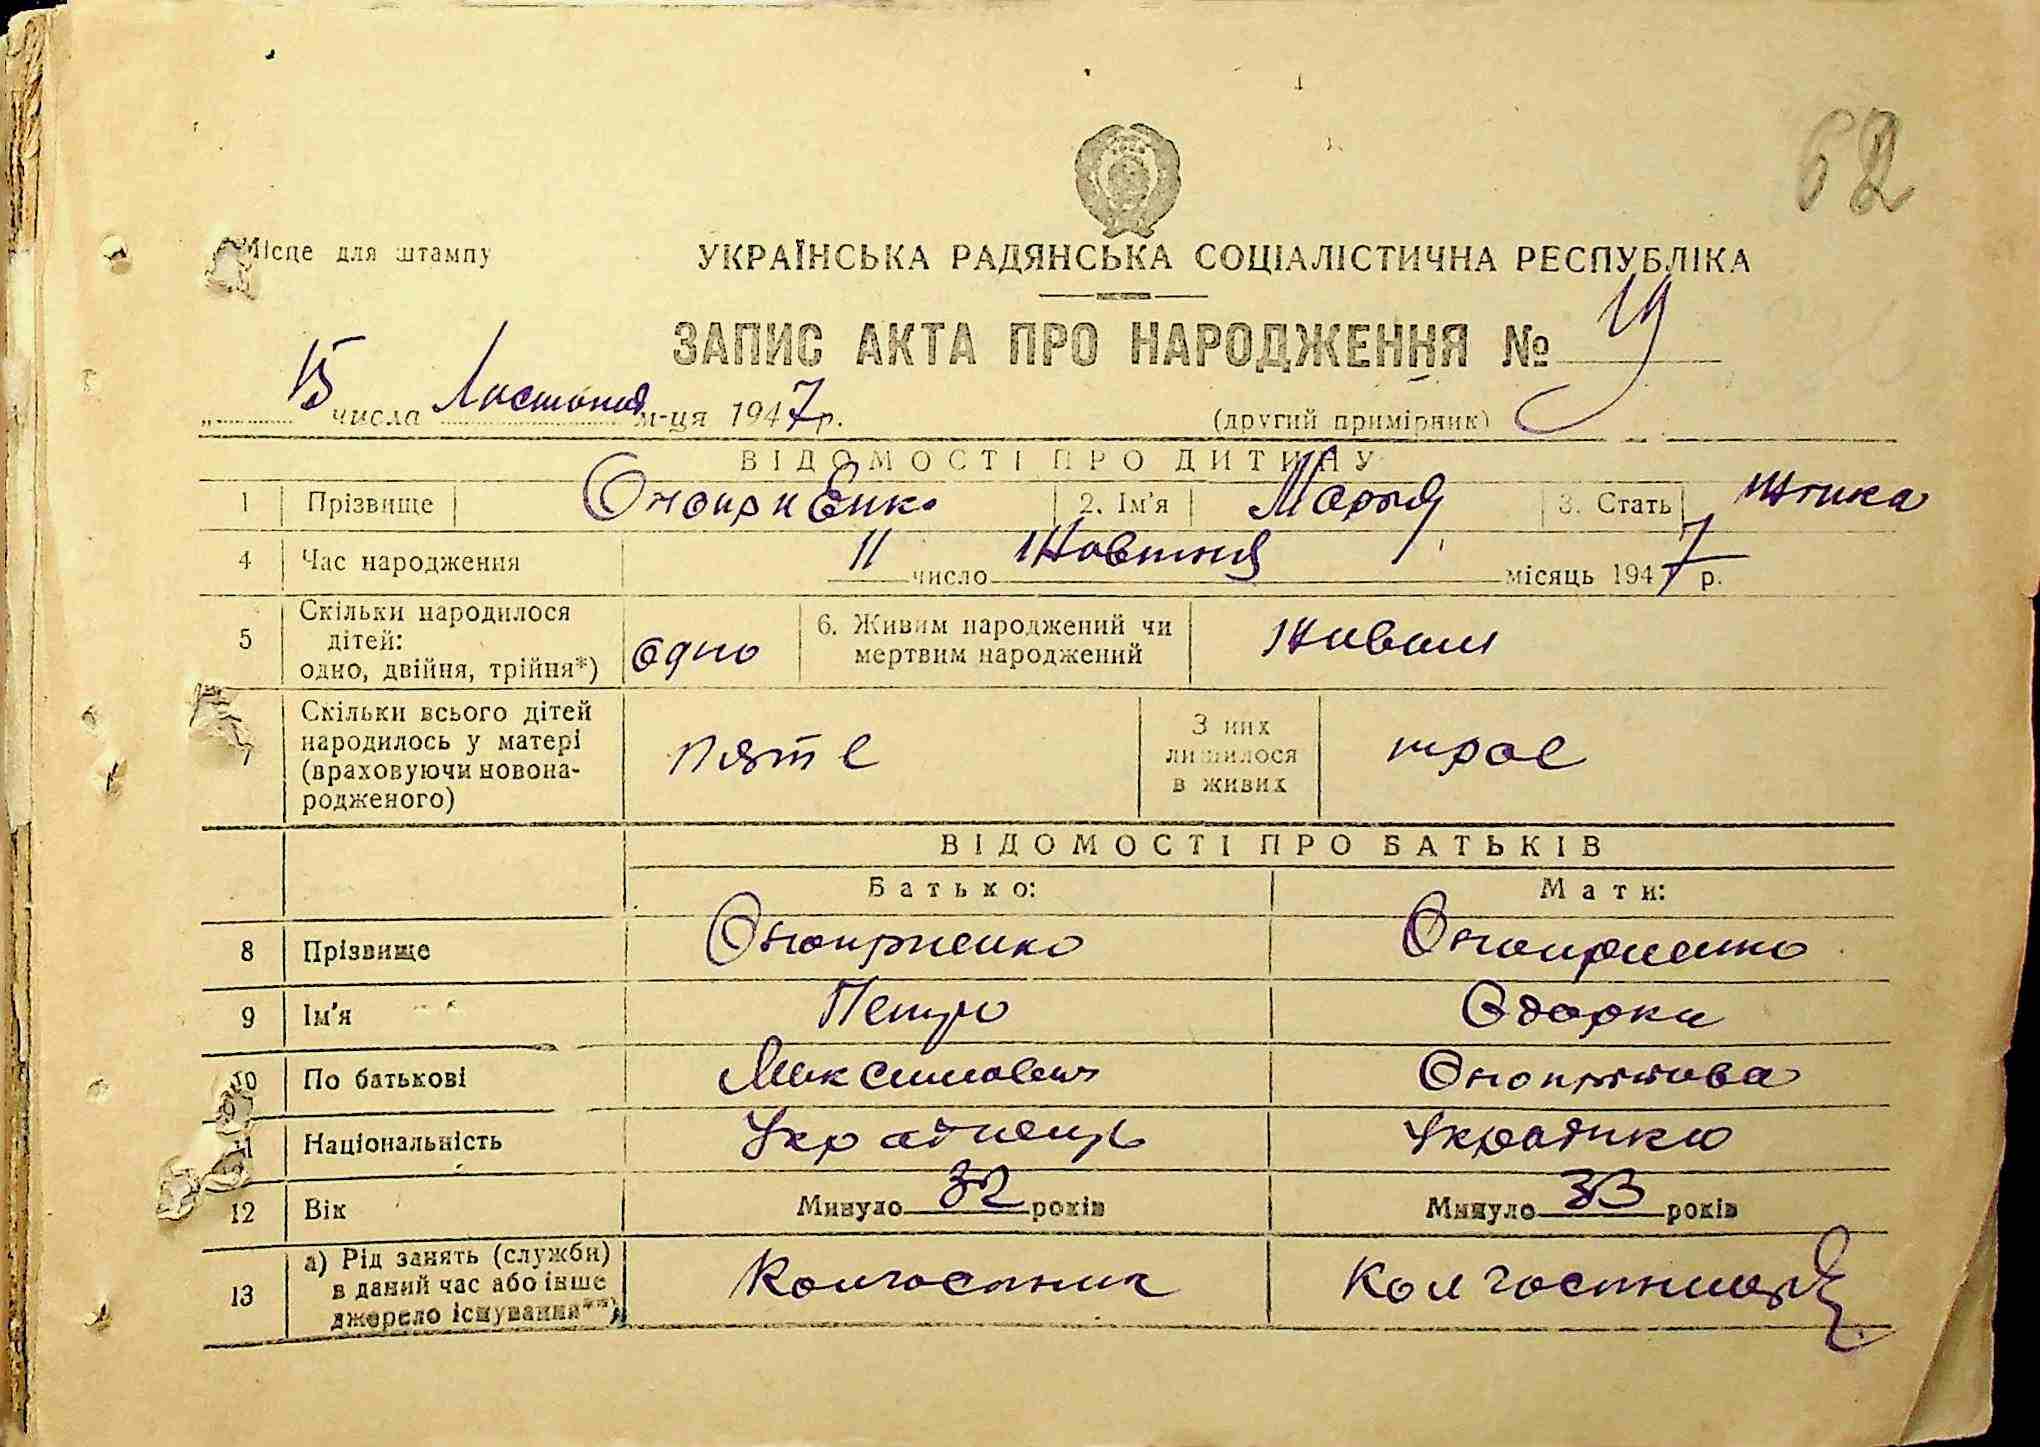 62
Місце для штампу
УКРАЇНСЬКА РАДЯНСЬКА СОЦІАЛІСТИЧНА РЕСПУБЛІКА
ЗАПИС АКТА ПРО НАРОДЖЕННЯ № 19
15 числа Листопад м-ця 1947 р.
(другий примірник)
ВІДОМОСТІ ПРО ДИТИНУ
1 Прізвище Оноприенко 2. Ім'я Марья 3. Стать жінка
4 Час народження 11 число Жовтня місяць 1947 р.
5 Скільки народилося дітей: одно, двійня, трійня*) одно 6. Живим народжений чи мертвим народжений живим
7 Скільки всього дітей народилось у матері (враховуючи новона-родженого) пяте З них лишилося в живих трое
ВІДОМОСТІ ПРО БАТЬКІВ
Батько: Мати:
8 Прізвище Оноприенко Оноприенко
9 Ім'я Петро Одарка
10 По батькові Максимович
11 Національність Українець Українка
12 Вік Минуло 32 років Минуло 33 років
13 а) Рід занять (служби) в даний час або інше джерело існування**) Колгоспник